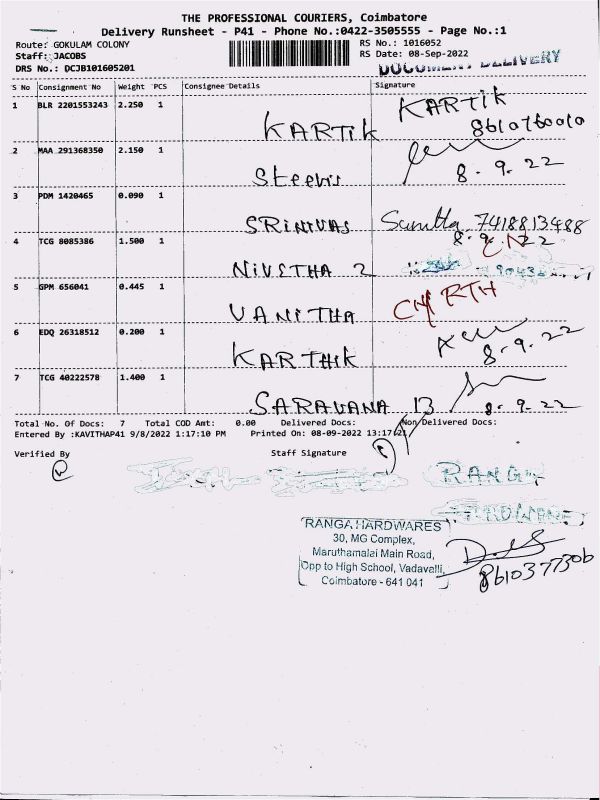 THE PROFESSIONAL COURIERS, Coimbatore
Delivery Runsheet - P41 - Phone No.:0422-3505555 - Page No.:1
Route: GOKULAM COLONY
RS No.: 1016052
Staff: JACOBS
RS Date: 08-Sep-2022
DRS No.: DCJB101605201
DOCUMENT DELIVERY
S No Consignment No Weight PCS Consignee Details Signature
1 BLR 2201553243 2.250 1 KARTIK KARTIK
8610760010
2 MAA 291368350 2.150 1 Steevis
8.9.22
3 PDM 1420465 0.090 1 SRINIVAS Sunitha 7418813488
8.9.22
4 TCG 8085386 1.500 1 NIVETHA 2
5 GPM 656041 0.445 1 VANITHA
6 EDQ 26318512 0.200 1 KARTHIK
8.9.22
7 TCG 40222578 1.400 1 SARAVANA 13 8.9.22
Total No. Of Docs: 7 Total COD Amt: 0.00 Delivered Docs: Non Delivered Docs:
Entered By :KAVITHAP41 9/8/2022 1:17:10 PM Printed On: 08-09-2022 13:17:21
Verified By Staff Signature
RANGA
HARDWARES
RANGA HARDWARES
30, MG Complex,
Maruthamalai Main Road,
Opp to High School, Vadavalli,
Coimbatore - 641 041
8610377306